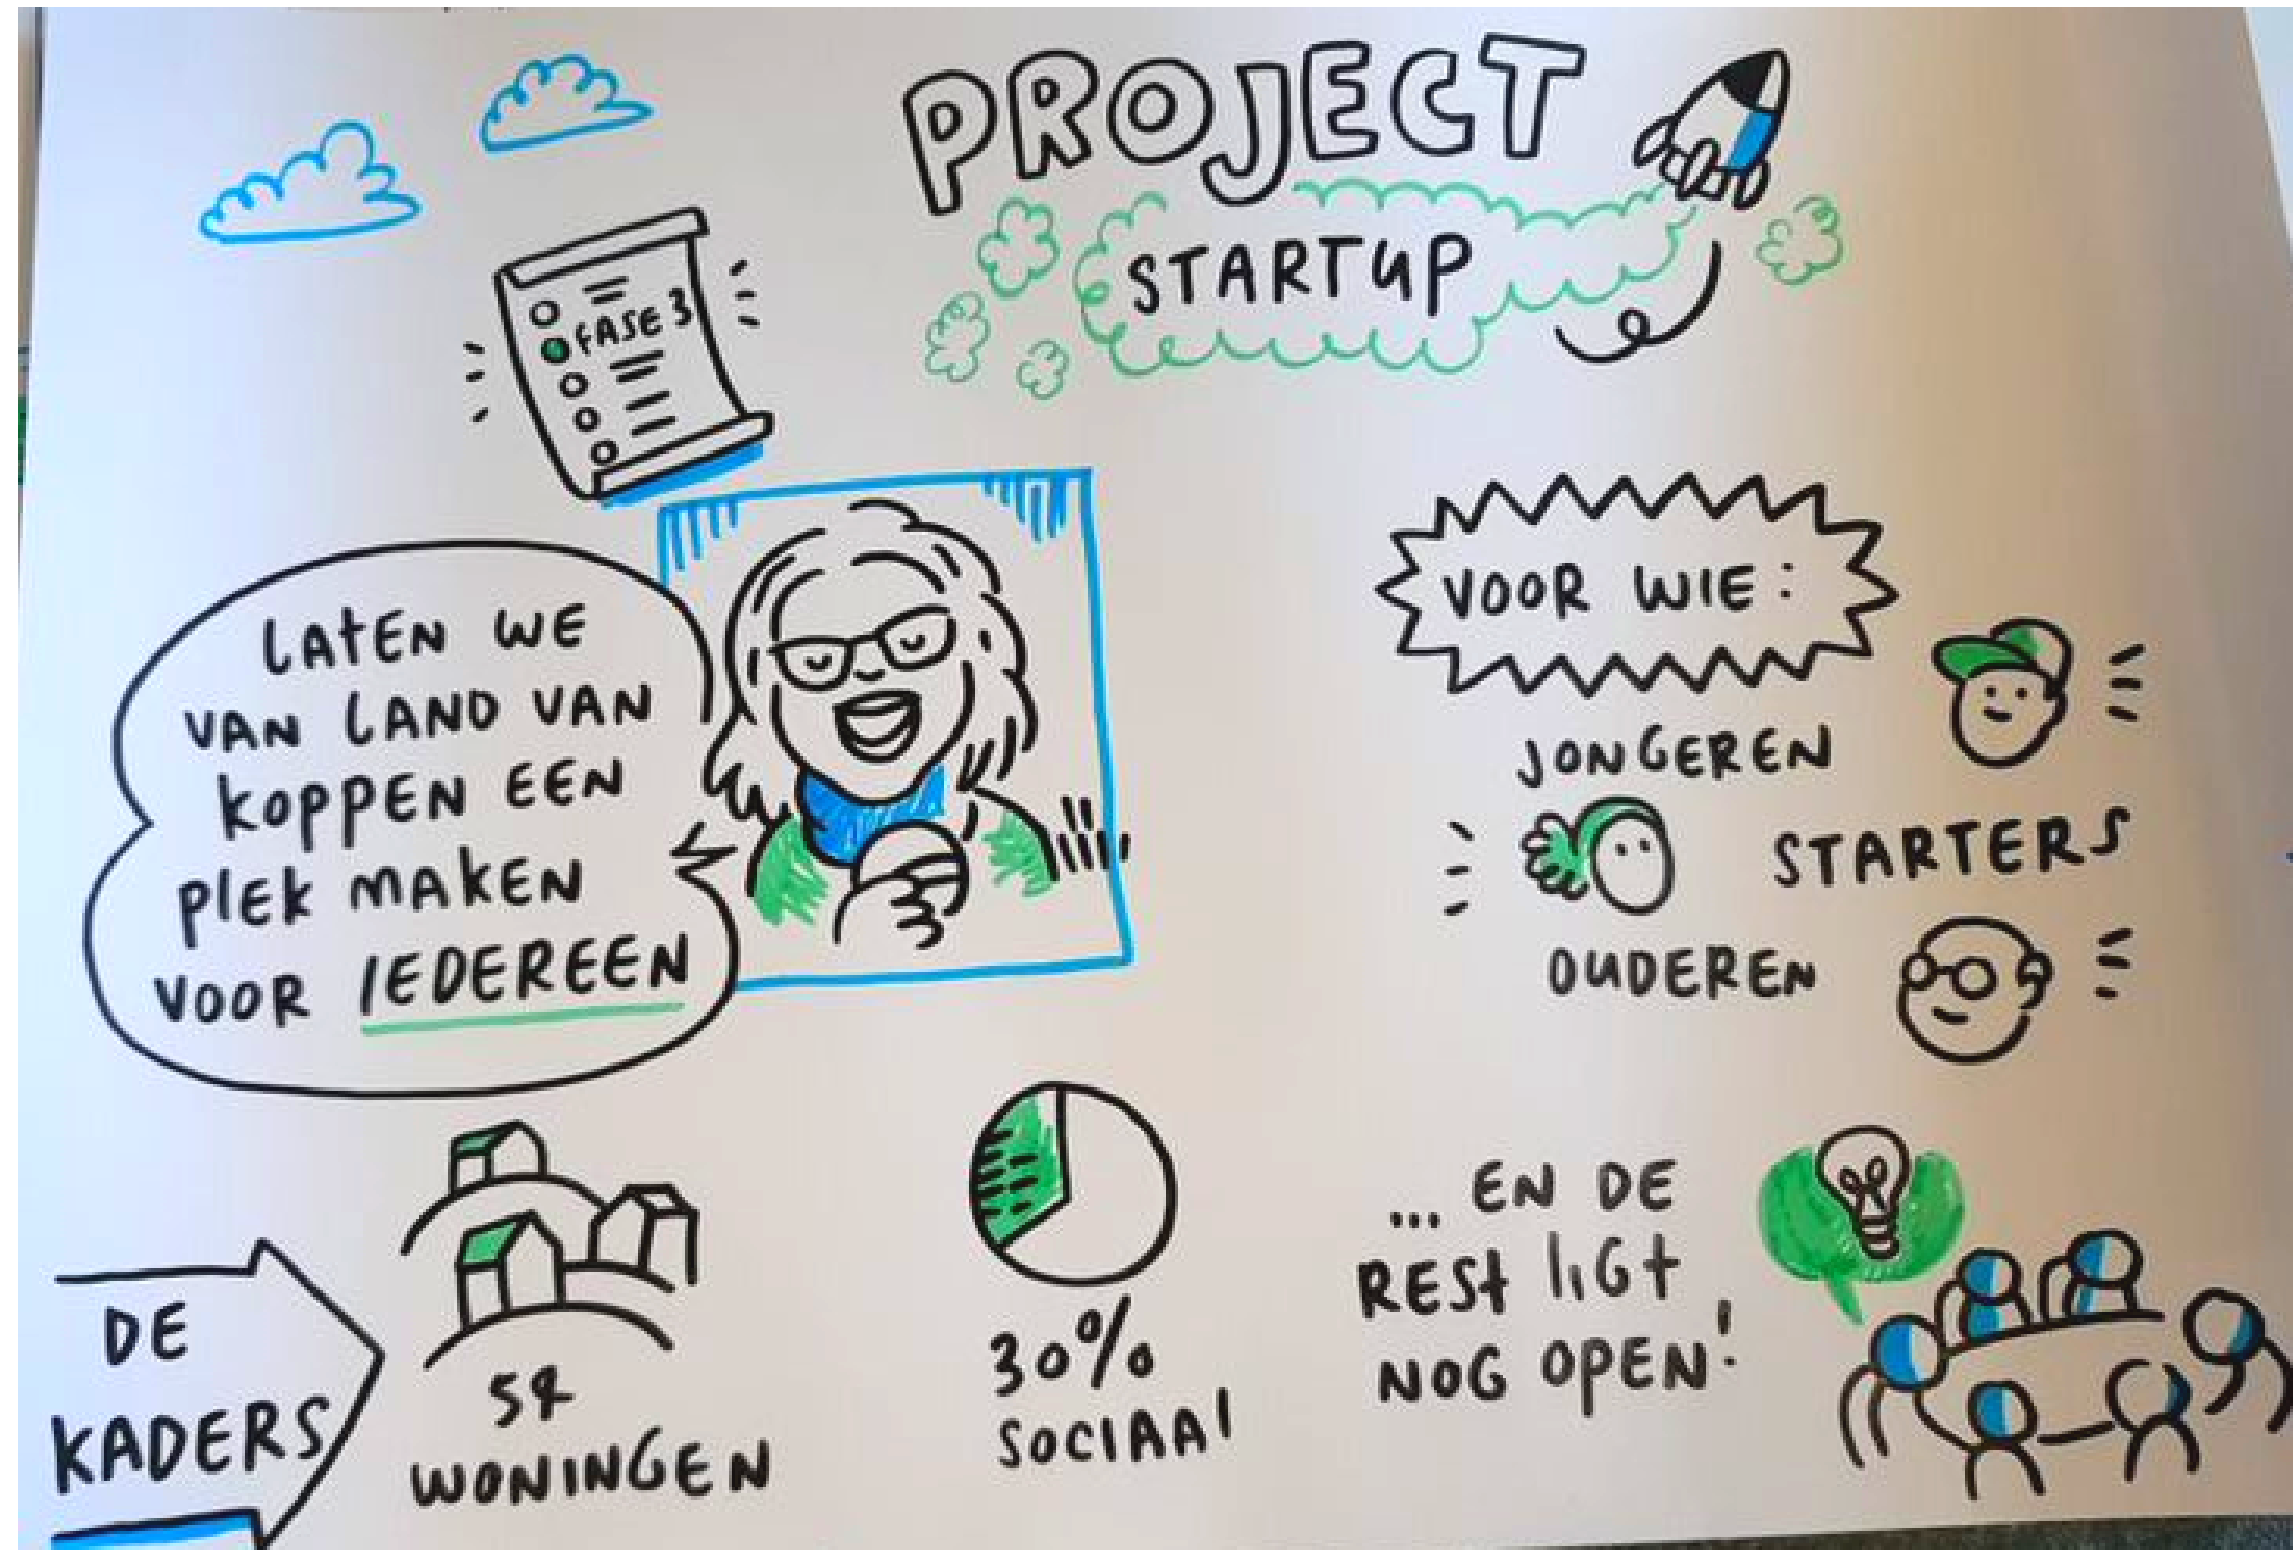 PROJECT
STARTUP
FASE 3
LATEN WE
VAN LAND VAN
KOPPEN EEN
PLEK MAKEN
VOOR IEDEREEN
VOOR WIE:
JONGEREN
STARTERS
OUDEREN
DE
KADERS
54
WONINGEN
30%
SOCIAAL
... EN DE
REST LIGT
NOG OPEN!